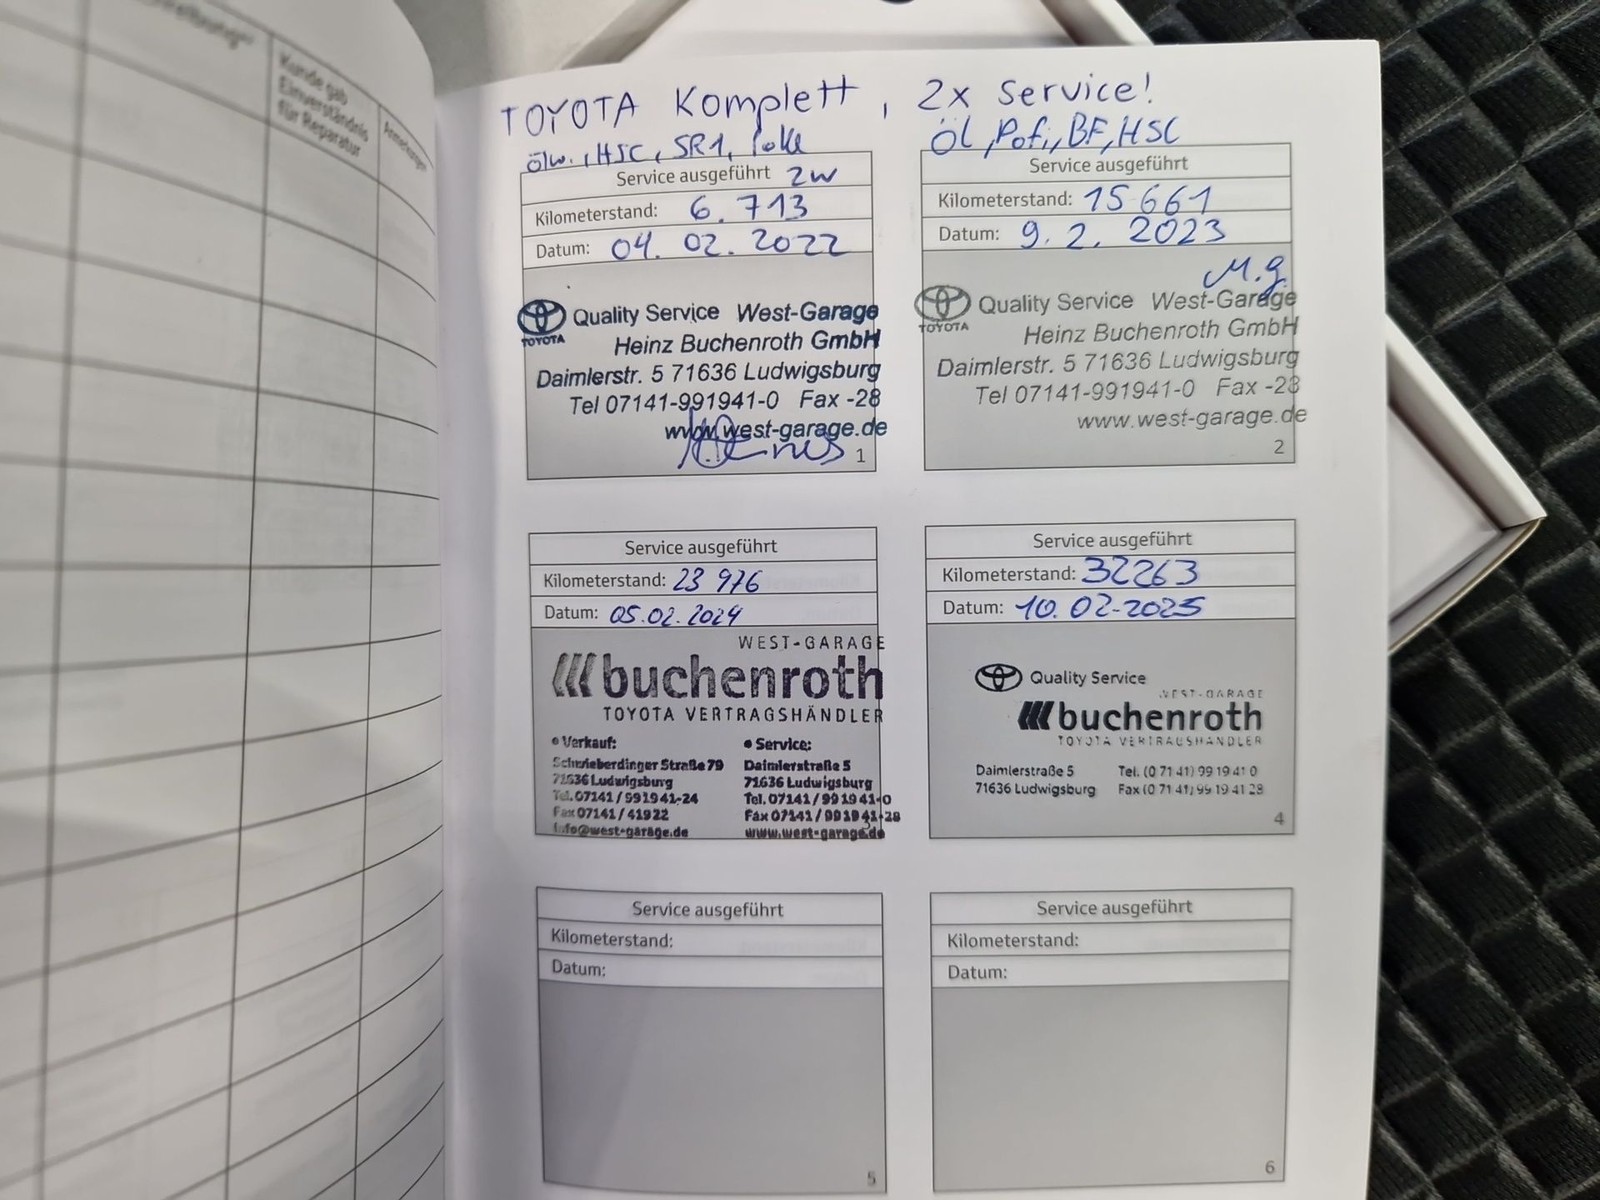 Kunde gab
Einverständnis
für Reparatur
TOYOTA Komplett, 2x Service!
ölw., HSC, SR1,
Öl, Pofi, BF, HSC
Service ausgeführt 2w
Kilometerstand: 6.713
Datum: 04. 02. 2022
TOYOTA
Quality Service West-Garage
Heinz Buchenroth GmbH
Daimlerstr. 5 71636 Ludwigsburg
Tel 07141-991941-0 Fax -28
www.west-garage.de
1
Service ausgeführt
Kilometerstand: 15 661
Datum: 9. 2. 2023
M.g.
TOYOTA
Quality Service West-Garage
Heinz Buchenroth GmbH
Daimlerstr. 5 71636 Ludwigsburg
Tel 07141-991941-0 Fax -28
www.west-garage.de
2
Service ausgeführt
Kilometerstand: 23 976
Datum: 05.02.2024
WEST-GARAGE
buchenroth
TOYOTA VERTRAGSHÄNDLER
• Verkauf:
Schwieberdinger Straße 79
71636 Ludwigsburg
Tel. 07141/991941-24
Fax 07141/41922
info@west-garage.de
• Service:
Daimlerstraße 5
71636 Ludwigsburg
Tel. 07141/991941-0
Fax 07141/991941-28
www.west-garage.de
Service ausgeführt
Kilometerstand: 32263
Datum: 10.02-2025
Quality Service
WEST-GARAGE
buchenroth
TOYOTA VERTRAGSHÄNDLER
Daimlerstraße 5 Tel. (0 71 41) 99 19 41 0
71636 Ludwigsburg Fax (0 71 41) 99 19 41 28
4
Service ausgeführt
Kilometerstand:
Datum:
5
Service ausgeführt
Kilometerstand:
Datum:
6